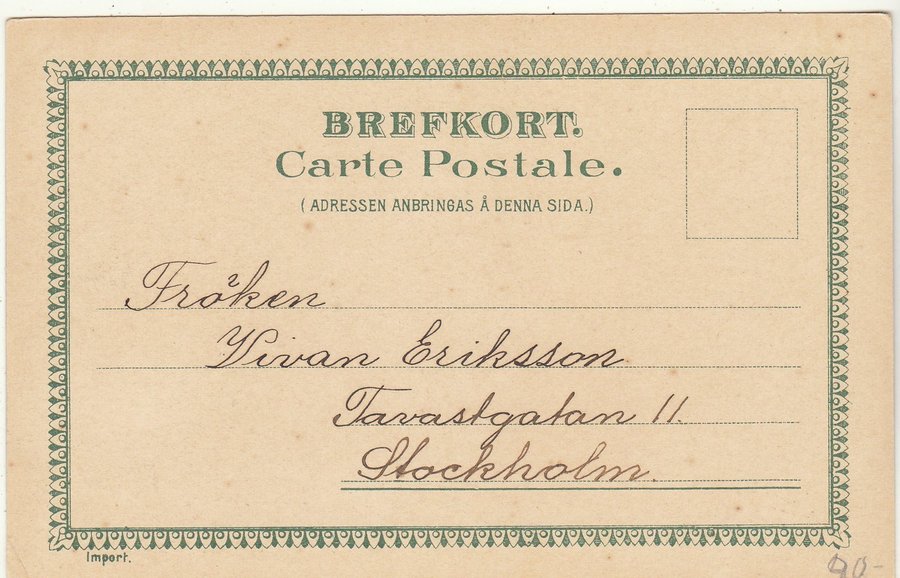 BREFKORT.
Carte Postale.
(ADRESSEN ANBRINGAS Å DENNA SIDA.)
Fröken
Vivan Eriksson
Tavastgatan 11.
Stockholm.
Import.
90-